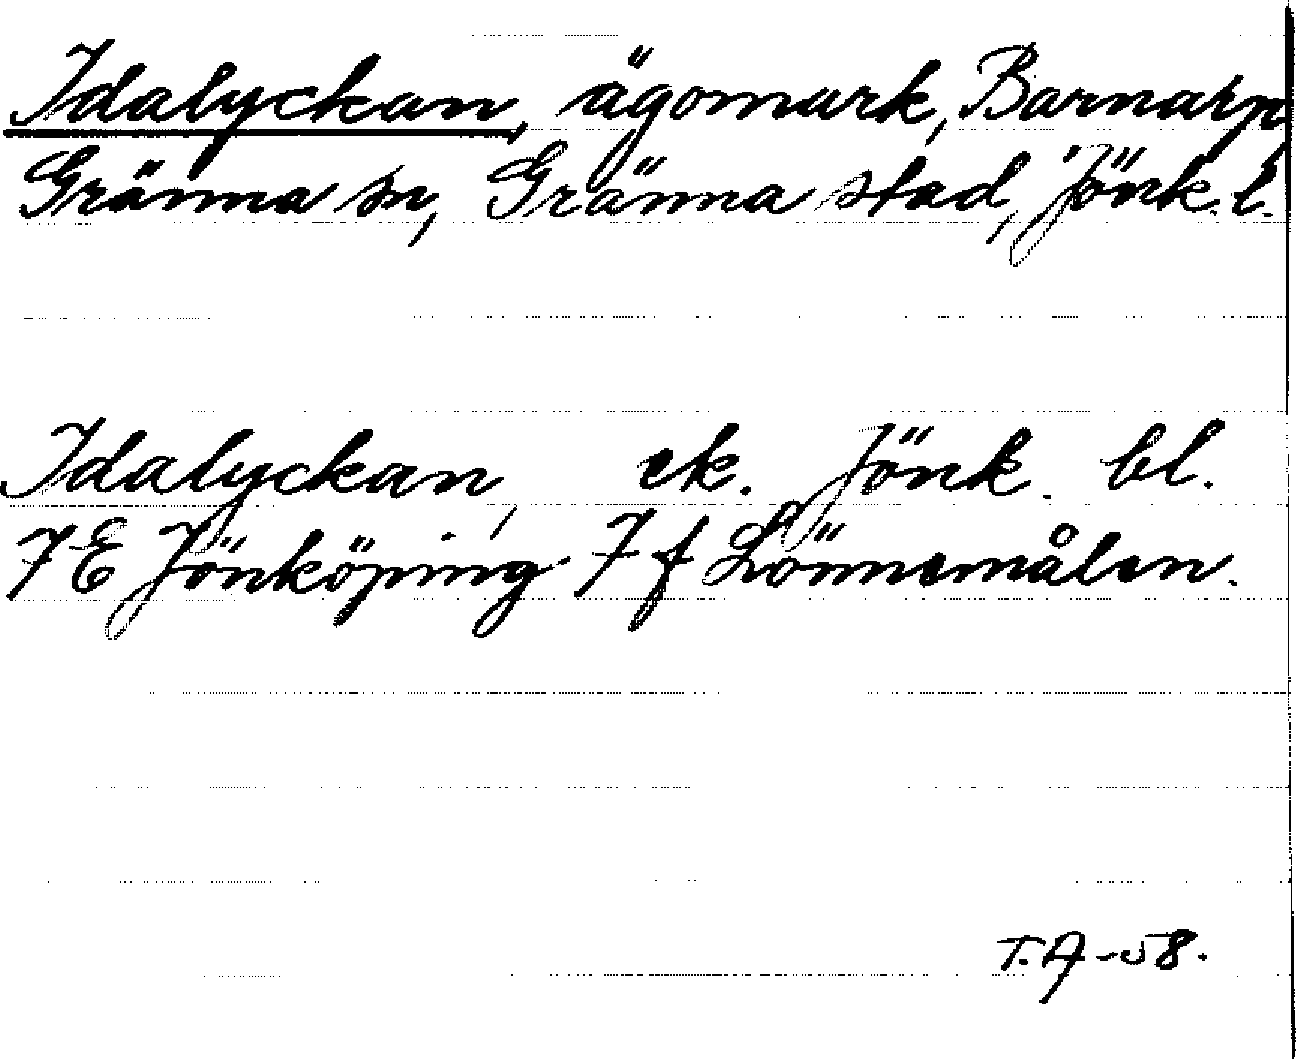 Idalyckan, ägomark, Barnarp
Gränna sn, Gränna stad, Jönk. l.
Idalyckan, ek. Jönk. bl.
7E Jönköping 7f Lönnemålen.
T.A-58.